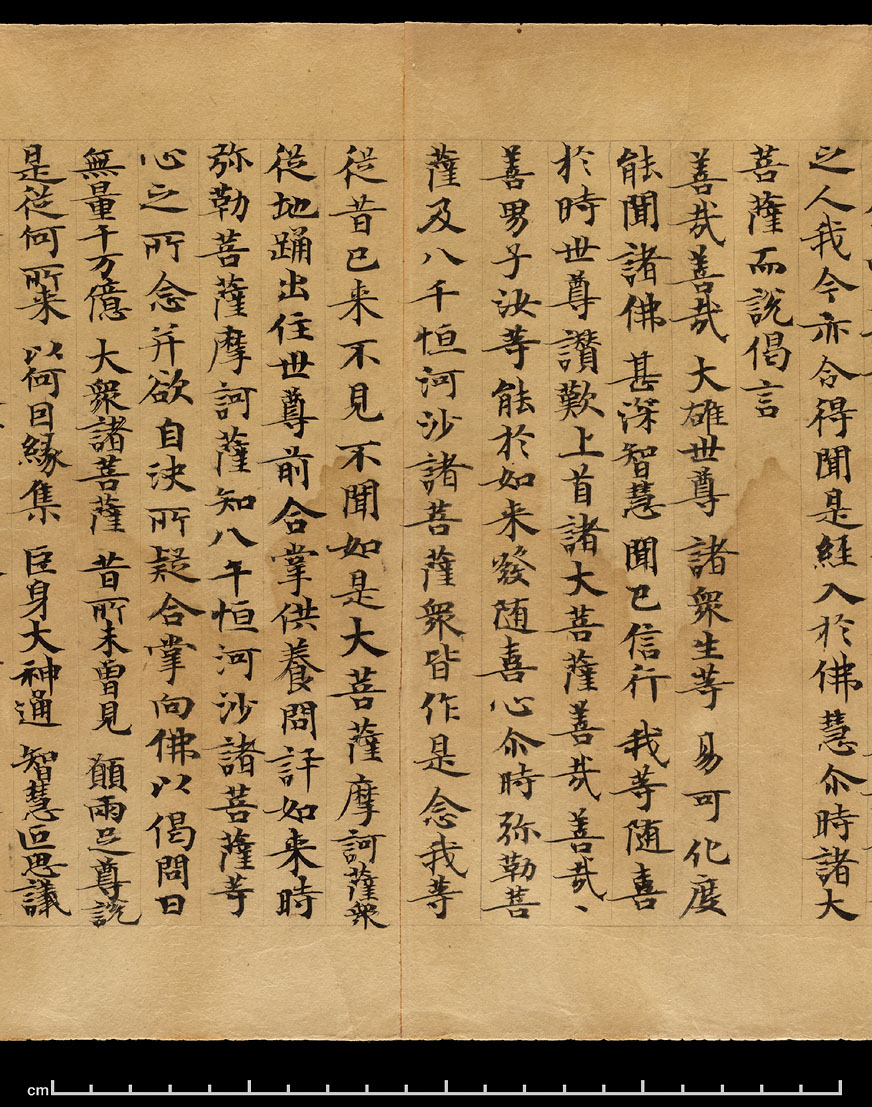 之人我今亦令得聞是經入於佛慧尒時諸大
菩薩而說偈言
善哉善哉 大雄世尊 諸衆生等 易可化度
能聞諸佛 甚深智慧 聞已信行 我等随喜
於時世尊讃歎上首諸大菩薩善哉善哉、
善男子汝等能於如来發随喜心尒時弥勒菩
薩及八千恒河沙諸菩薩衆皆作是念我等
從昔已来不見不聞如是大菩薩摩訶薩衆
從地踊出住世尊前合掌供養問訊如来時
弥勒菩薩摩訶薩知八千恒河沙諸菩薩等
心之所念并欲自決所疑合掌向佛以偈問曰
無量千万億 大衆諸菩薩 昔所未曾見 願兩足尊說
是従何所来 以何因緣集 臣身大神通 智慧叵思議
cm